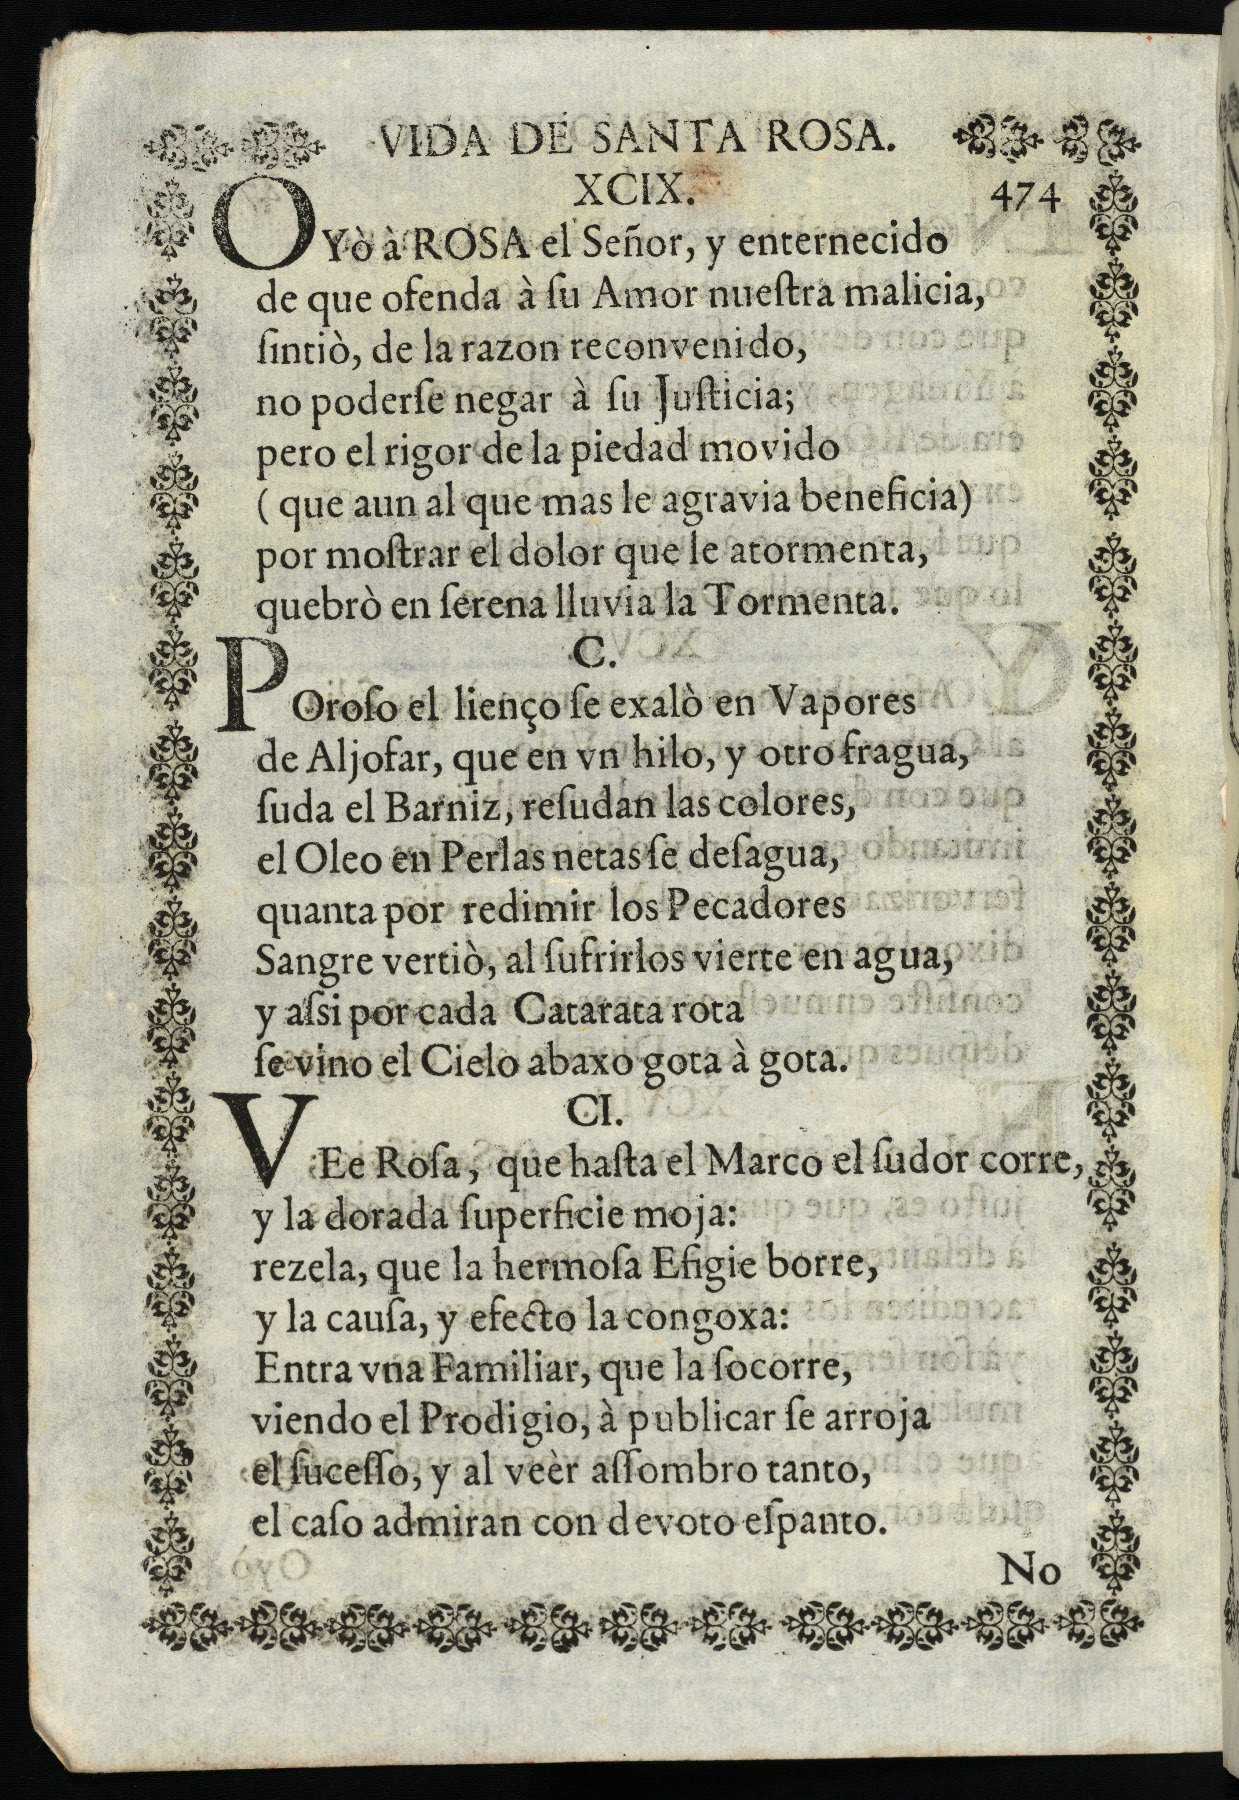 VIDA DE SANTA ROSA.
XCIX. 474
OYò à ROSA el Señor, y enternecido
de que ofenda à ſu Amor nueſtra malicia,
ſintiò, de la razon reconvenido,
no poderſe negar à ſu Juſticia;
pero el rigor de la piedad movido
( que aun al que mas le agravia beneficia)
por moſtrar el dolor que le atormenta,
quebrò en ſerena lluvia la Tormenta.
C.
POroſo el lienço ſe exalò en Vapores
de Aljofar, que en vn hilo, y otro fragua,
ſuda el Barniz, reſudan las colores,
el Oleo en Perlas netas ſe deſagua,
quanta por redimir los Pecadores
Sangre vertiò, al ſufrirlos vierte en agua,
y aſsi por cada Catarata rota
ſe vino el Cielo abaxo gota à gota.
CI.
VEe Roſa, que haſta el Marco el ſudor corre,
y la dorada ſuperficie moja:
rezela, que la hermoſa Efigie borre,
y la cauſa, y efecto la congoxa:
Entra vna Familiar, que la ſocorre,
viendo el Prodigio, à publicar ſe arroja
el ſuceſſo, y al veèr aſſombro tanto,
el caſo admiran con devoto eſpanto.
No